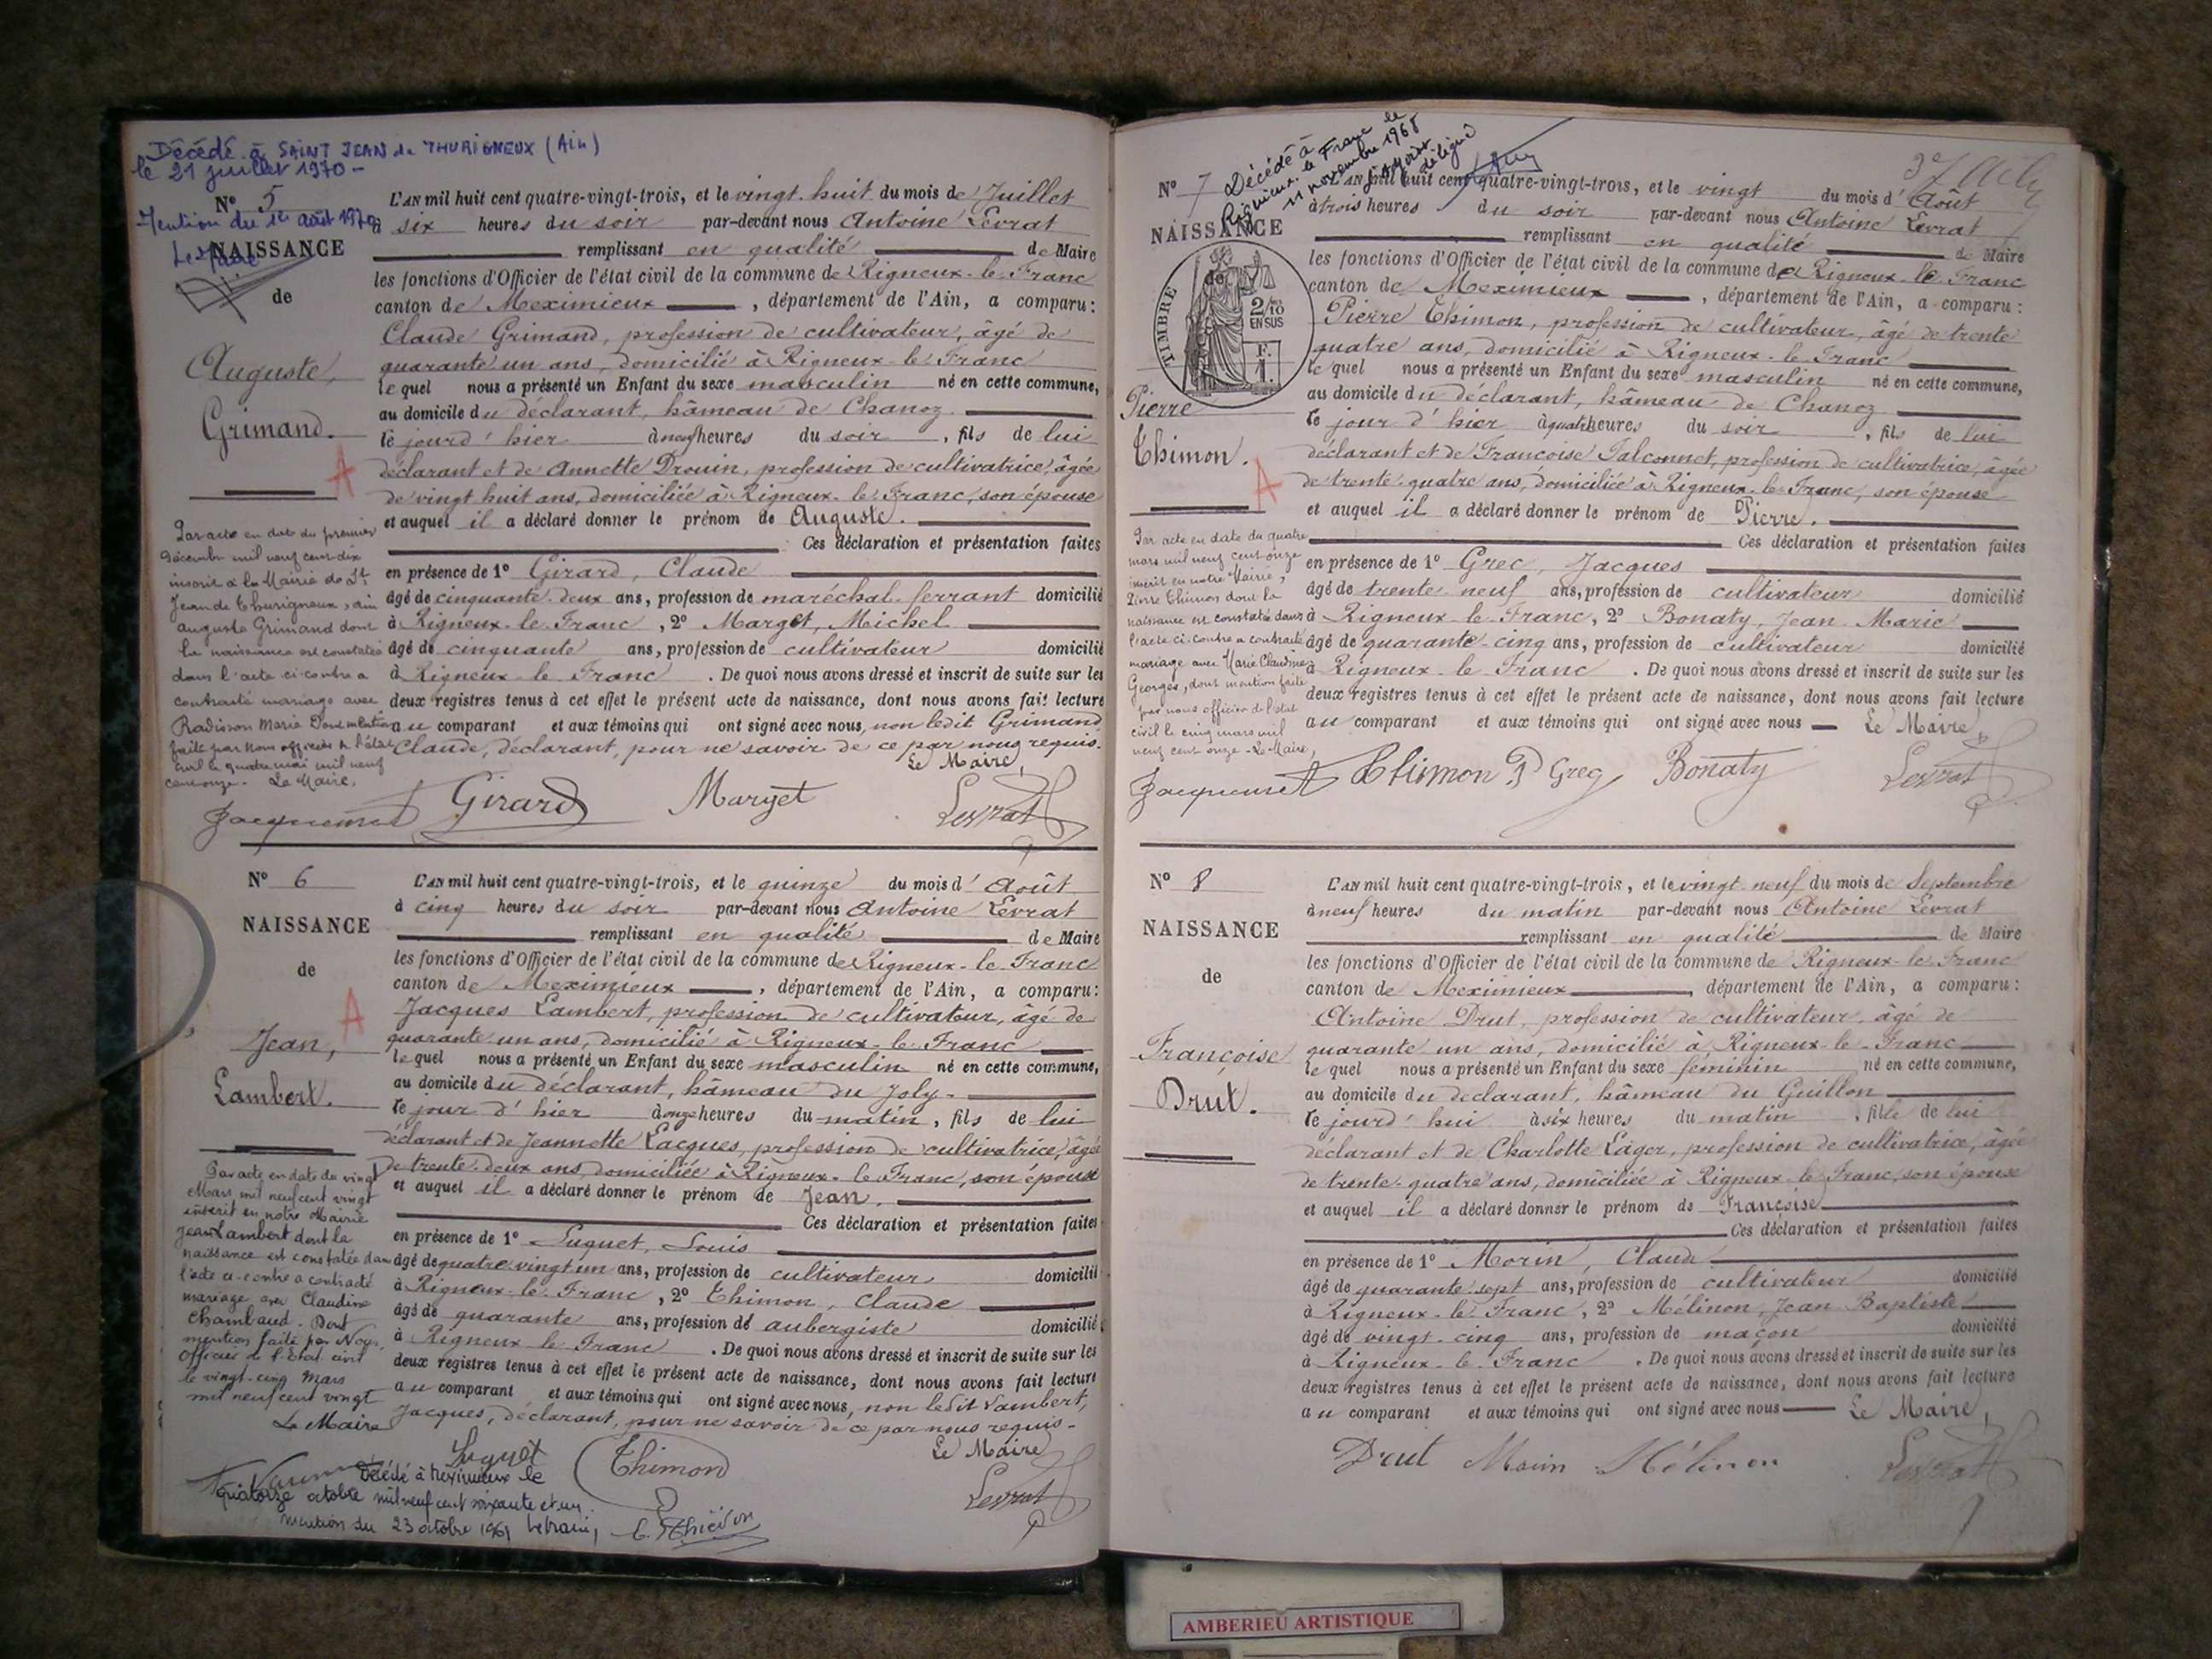 Décédé à SAINT JEAN de THURIGNEUX (Ain)
le 21 juillet 1970 -
N° 5
Mention du 1er août 1970
Le Maire
NAISSANCE
de
Auguste,
Grimand.
A
Par acte en date du premier
Décembre mil neuf cent dix
inscrit à la Mairie de St
Jean de Thurigneux, ain
Auguste Grimand dont
la naissance est constatée
dans l'acte ci-contre a
contracté mariage avec
Radisson Marie Dont mention
faite par Nous officier de l'état
civil le quatre mai mil neuf
cent onze. Le Maire,
L'AN mil huit cent quatre-vingt-trois, et le vingt-huit du mois de Juillet
à six heures du soir par-devant nous Antoine Levrat
remplissant en qualité de Maire
les fonctions d'Officier de l'état civil de la commune de Rigneux-le-Franc
canton de Meximieux, département de l'Ain, a comparu:
Claude Grimand, profession de cultivateur, âgé de
quarante un ans, domicilié à Rigneux-le-Franc
lequel nous a présenté un Enfant du sexe masculin né en cette commune,
au domicile du déclarant, hâmeau de Chanoz.
le jour d'hier à neuf heures du soir, fils de lui
déclarant et de Annette Drouin, profession de cultivatrice, âgée
de vingt huit ans, domiciliée à Rigneux-le-Franc, son épouse
et auquel il a déclaré donner le prénom de Auguste.
Ces déclaration et présentation faites
en présence de 1° Girard, Claude
âgé de cinquante-deux ans, profession de maréchal-ferrant domicilié
à Rigneux-le-Franc, 2° Marget, Michel
âgé de cinquante ans, profession de cultivateur domicilié
à Rigneux-le-Franc. De quoi nous avons dressé et inscrit de suite sur les
deux registres tenus à cet effet le présent acte de naissance, dont nous avons fait lecture
au comparant et aux témoins qui ont signé avec nous, non ledit Grimand
Claude, déclarant, pour ne savoir de ce par nous requis.
Le Maire,
Jacquemet Girard Marget Levrat
N° 6
NAISSANCE
de
A
Jean,
Lambert.
Par acte en date du vingt
Mars mil neuf cent vingt
inscrit en notre Mairie
Jean Lambert dont la
naissance est constatée dans
l'acte ci-contre a contracté
mariage avec Claudine
Chambaud. Dont
mention faite par Nous,
Officier de l'Etat civil
le vingt-cinq Mars
mil neuf cent vingt
Le Maire
L'AN mil huit cent quatre-vingt-trois, et le quinze du mois d'Août
à cinq heures du soir par-devant nous Antoine Levrat
remplissant en qualité de Maire
les fonctions d'Officier de l'état civil de la commune de Rigneux-le-Franc
canton de Meximieux, département de l'Ain, a comparu:
Jacques Lambert, profession de cultivateur, âgé de
quarante un ans, domicilié à Rigneux-le-Franc
lequel nous a présenté un Enfant du sexe masculin né en cette commune,
au domicile du déclarant, hâmeau du Joly.
le jour d'hier à onze heures du matin, fils de lui
déclarant et de Jeannette Lacques, profession de cultivatrice, âgée
de trente-deux ans, domiciliée à Rigneux-le-Franc, son épouse
et auquel il a déclaré donner le prénom de Jean.
Ces déclaration et présentation faites
en présence de 1° Luquet, Louis
âgé de quatre vingt un ans, profession de cultivateur domicilié
à Rigneux-le-Franc, 2° Thimon, Claude
âgé de quarante ans, profession de aubergiste domicilié
à Rigneux-le-Franc. De quoi nous avons dressé et inscrit de suite sur les
deux registres tenus à cet effet le présent acte de naissance, dont nous avons fait lecture
au comparant et aux témoins qui ont signé avec nous, non ledit Lambert,
Jacques, déclarant, pour ne savoir de ce par nous requis.
Le Maire
Luquet Thimon Levrat
Décédé à Meximieux le
quatorze octobre mil neuf cent soixante et un
mention du 23 octobre 1961 Le Maire,
N° 7
Décédé à
Rigneux-le-Franc le
11 novembre 1968
NAISSANCE
de
TIMBRE
2/10
EN SUS
F.
1.
Pierre
Thimon.
A
Par acte en date du quatre
mars mil neuf cent onze
inscrit en notre Mairie,
Pierre Thimon dont la
naissance est constatée dans
l'acte ci-contre a contracté
mariage avec Marie Claudine
Georges, dont mention faite
par nous officier de l'état
civil le cinq mars mil
neuf cent onze - Le Maire,
L'AN mil huit cent quatre-vingt-trois, et le vingt du mois d'Août
à trois heures du soir par-devant nous Antoine Levrat
remplissant en qualité de Maire
les fonctions d'Officier de l'état civil de la commune de Rigneux-le-Franc
canton de Meximieux, département de l'Ain, a comparu:
Pierre Thimon, profession de cultivateur, âgé de trente
quatre ans, domicilié à Rigneux-le-Franc
lequel nous a présenté un Enfant du sexe masculin né en cette commune,
au domicile du déclarant, hâmeau de Chanoz
le jour d'hier à quatre heures du soir, fils de lui
déclarant et de Françoise Falconnet, profession de cultivatrice, âgée
de trente-quatre ans, domiciliée à Rigneux-le-Franc, son épouse
et auquel il a déclaré donner le prénom de Pierre.
Ces déclaration et présentation faites
en présence de 1° Grec, Jacques
âgé de trente-neuf ans, profession de cultivateur domicilié
à Rigneux-le-Franc, 2° Bonaty, Jean-Marie
âgé de quarante-cinq ans, profession de cultivateur domicilié
à Rigneux-le-Franc. De quoi nous avons dressé et inscrit de suite sur les
deux registres tenus à cet effet le présent acte de naissance, dont nous avons fait lecture
au comparant et aux témoins qui ont signé avec nous Le Maire,
Jacquemet Thimon P Greg Bonaty Levrat
N° 8
NAISSANCE
de
Françoise
Drut.
L'AN mil huit cent quatre-vingt-trois, et le vingt-neuf du mois de Septembre
à neuf heures du matin par-devant nous Antoine Levrat
remplissant en qualité de Maire
les fonctions d'Officier de l'état civil de la commune de Rigneux-le-Franc
canton de Meximieux, département de l'Ain, a comparu:
Antoine Drut, profession de cultivateur, âgé de
quarante un ans, domicilié à Rigneux-le-Franc
lequel nous a présenté un Enfant du sexe féminin né en cette commune,
au domicile du déclarant, hâmeau du Guillon
le jourd'hui à six heures du matin, fille de lui
déclarant et de Charlotte Lager, profession de cultivatrice, âgée
de trente-quatre ans, domiciliée à Rigneux-le-Franc, son épouse
et auquel il a déclaré donner le prénom de Françoise
Ces déclaration et présentation faites
en présence de 1° Morin, Claude
âgé de quarante-sept ans, profession de cultivateur domicilié
à Rigneux-le-Franc, 2° Mélinon, Jean Baptiste
âgé de vingt-cinq ans, profession de maçon domicilié
à Rigneux-le-Franc. De quoi nous avons dressé et inscrit de suite sur les
deux registres tenus à cet effet le présent acte de naissance, dont nous avons fait lecture
au comparant et aux témoins qui ont signé avec nous Le Maire,
Drut Morin Mélinon Levrat
AMBERIEU ARTISTIQUE